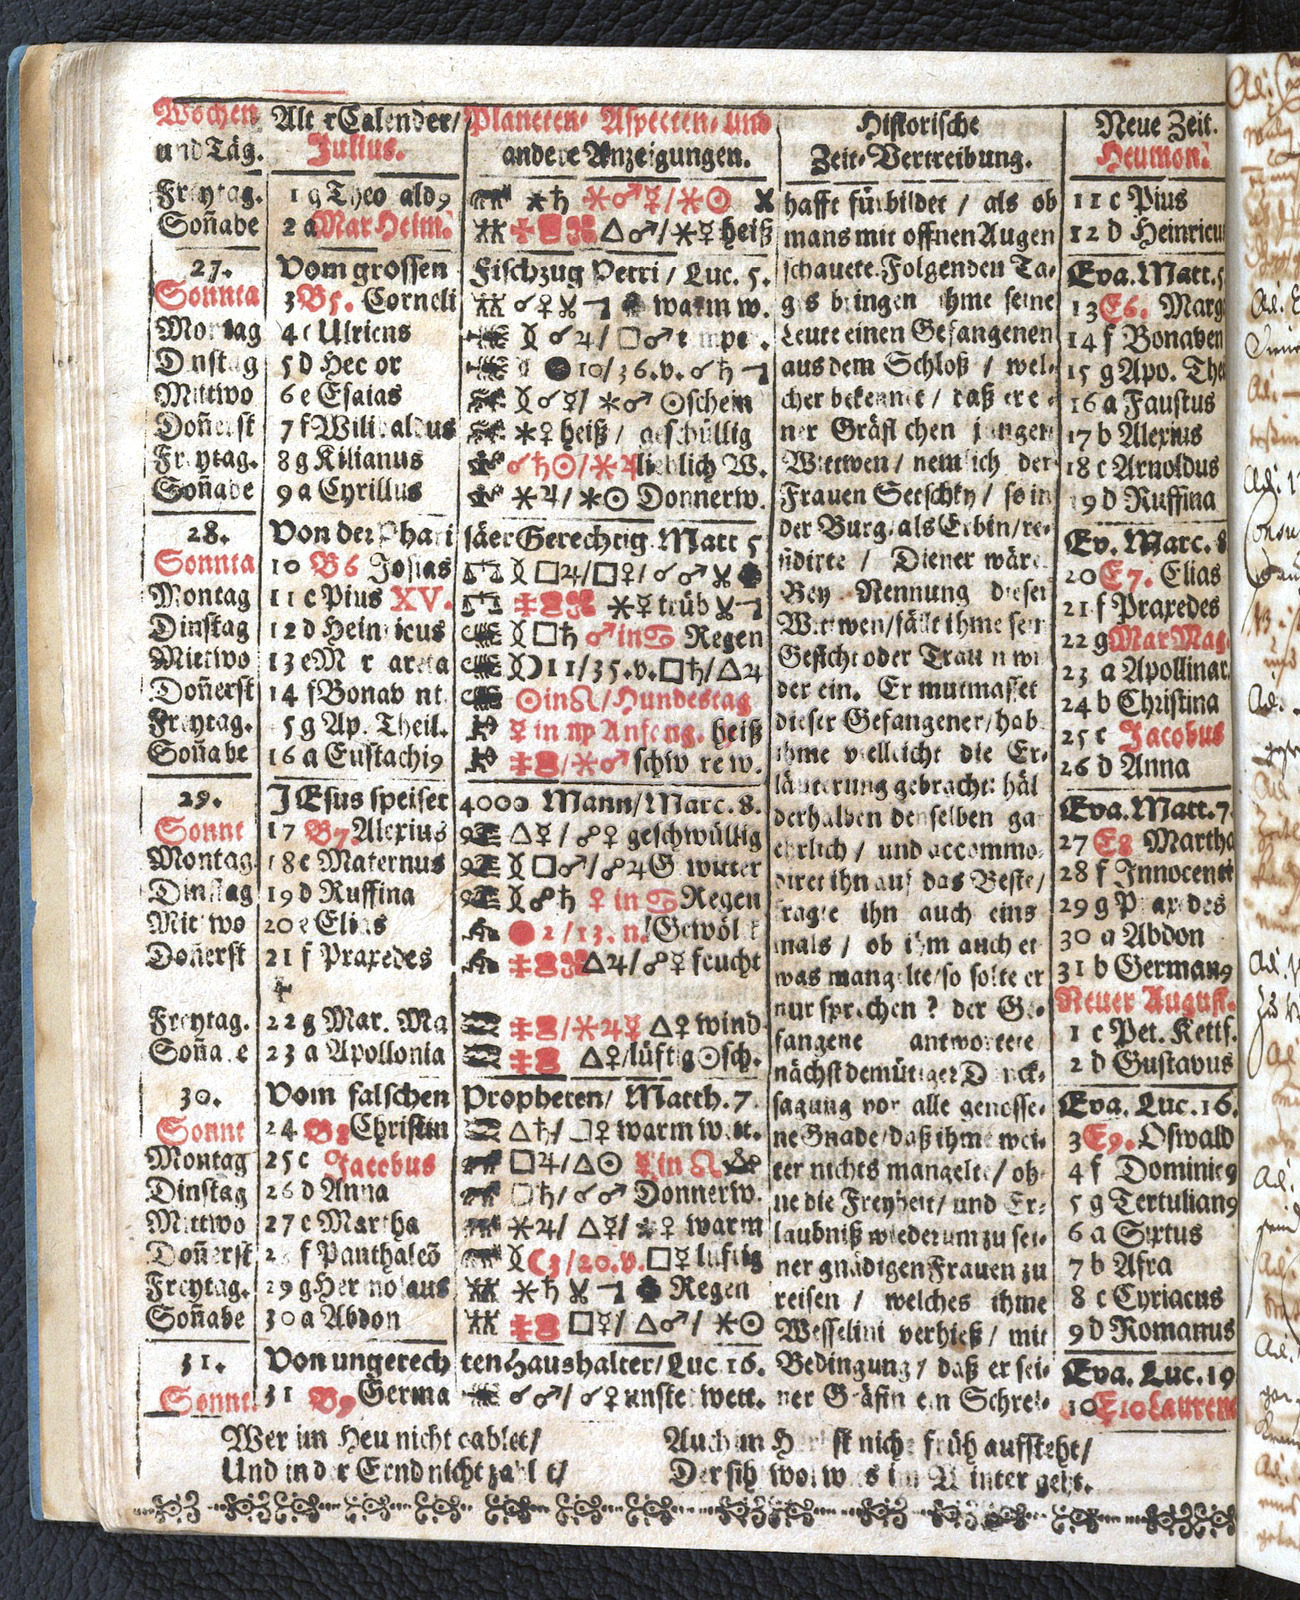 Wochen Alt r Calender/ Planeten- Aspecten- und Historische Neue Zeit.
und Täg. Julius. andere Anzeigungen. Zeit-Vertreibung. Heumon.
Freytag. 1 g Theo ald9 ⚹♄ ⚹♂☿/⚹☉ hafft fürbildet / als ob 11 c Pius
Soñabe 2 a Mar Heim. △♂/⚹☿ heiß mans mit offnen Augen 12 d Heinricu
27. Vom grossen Fischzug Petri / Luc. 5. schauete. Folgenden Ta- Eva. Matt. 5
Sonnta 3 B5. Corneli ☌♀ warm w. g s bringen ihme seine 13 E6. Marg
Montag 4 c Ulricus ☌♃/ □♂ Leute einen Gefangenen 14 f Bonaven
Dnstag 5 d Hec or ● 10/36.v. ☌♄ aus dem Schloß / wel- 15 g Apo. The
Mittwo 6 e Esaias ☌☿/ ⚹♂ ☉schein cher bekennet / daß er e 16 a Faustus
Doñerst 7 f Wilibaldus ⚹♀ heiß / geschüllig ner Gräflichen jungen 17 b Alexius
Freytag. 8 g Kilianus ☌♄☉/⚹♃ lieblich W. Wittwen / nemlich der 18 c Arnoldus
Soñabe 9 a Cyrillus ⚹♃/⚹☉ Donnerw. Frauen Setschky / so in 19 d Ruffina
28. Von der Phari säer Gerechtig. Matt 5 der Burg / als Erbin / re- Ev. Marc. 8
Sonnta 10 B6 Josias □♃/□♀/☌♂ sidirte / Diener wäre. 20 E7. Elias
Montag 11 c Pius XV. ⚹☿ trüb Bey Nennung dieser 21 f Praxedes
Dinstag 12 d Heinricus □♄ ♂in♋ Regen Wittwen / fällt ihme sein 22 g Mar Mag.
Mittwo 13 e M r areta ☽11/35.v.□♄/△♃ Gesicht oder Traum wi 23 a Apollinar.
Doñerst 14 f Bonav nt. ☉in♌/Hundestag der ein. Er mutmasset 24 b Christina
Freytag. 5 g Ap. Theil. ☿ in ♍ Anfang. heiß dieser Gefangener / hab 25 c Jacobus
Soñabe 16 a Eustachi9 ⚹♂ schw re w. ihme vielleicht die Er- 26 d Anna
29. JEsus speiset 4000 Mann / Marc. 8. läuterung gebracht: häl Eva. Matt. 7
Sonnt 17 B7. Alexius △☿ / ☍♀ geschwüllig derhalben denselben ga 27 E8 Martha
Montag. 18 c Maternus □♂/☍♃ G witter ehrlich / und accommo- 28 f Innocent
Dinstag 19 d Ruffina ☍♄ ♀ in ♋ Regen diret ihn auf das Beste / 29 g P axedes
Mittwo 20 e Elias ● 2/13. n. Gewöl fragte ihn auch eins 30 a Abdon
Doñerst 21 f Praxedes △♃/☍☿ feucht mals / ob ihm auch et 31 b German9
was mangelte / so solte er Neuer August.
Freytag. 22 g Mar. Ma ⚹♃☿ △♀ wind nur sprechen ? der Ge- 1 c Pet. Kettf.
Soña e 23 a Apollonia △♀/lüftig☉sch. fangene antwortete / 2 d Gustavus
nächst demütiger D nck-
30. Vom falschen Propheten / Matth. 7. sagung vor alle genosse- Eva. Luc. 16.
Sonnt 24 B8 Christin △♄/□♀ warm w tt. ne Gnade / daß ihme wei- 3 E9. Oswald
Montag 25 c Jacobus □♃/△☉ ☿in ♌ ter nichts mangelte / oh- 4 f Dominic9
Dinstag 26 d Anna □♄/ ☌♂ Donnerw. ne die Freyheit / und Er- 5 g Tertulian9
Mittwo 27 e Martha ⚹♃/ △☿/ ⚹♀ warm laubniß wiederum zu sei- 6 a Sixtus
Doñerst 2 f Panthaleō ☾3/20.v. □☿ luftig ner gnädigen Frauen zu 7 b Afra
Freytag. 29 g Hermolaus ⚹♄ Regen reisen / welches ihme 8 c Cyriacus
Soñabe 30 a Abdon □☿/ △♂/ ⚹☉ Wesselini verhieß / mit 9 d Romanus
31. Von ungerech ten Haushalter / Luc 16. Bedingung / daß er sei- Eva. Luc. 19
Sonnt. 31 B9 Germa ☌♂/ ☌♀ unste wett. ner Gräfin ein Schrei- 10 E10 Lauren
Wer im Heu nicht gablet / Auch im H r st nicht früh aufsteht /
Und in der Ernd nicht zabl t / Der sih wo w s im Winter geht.